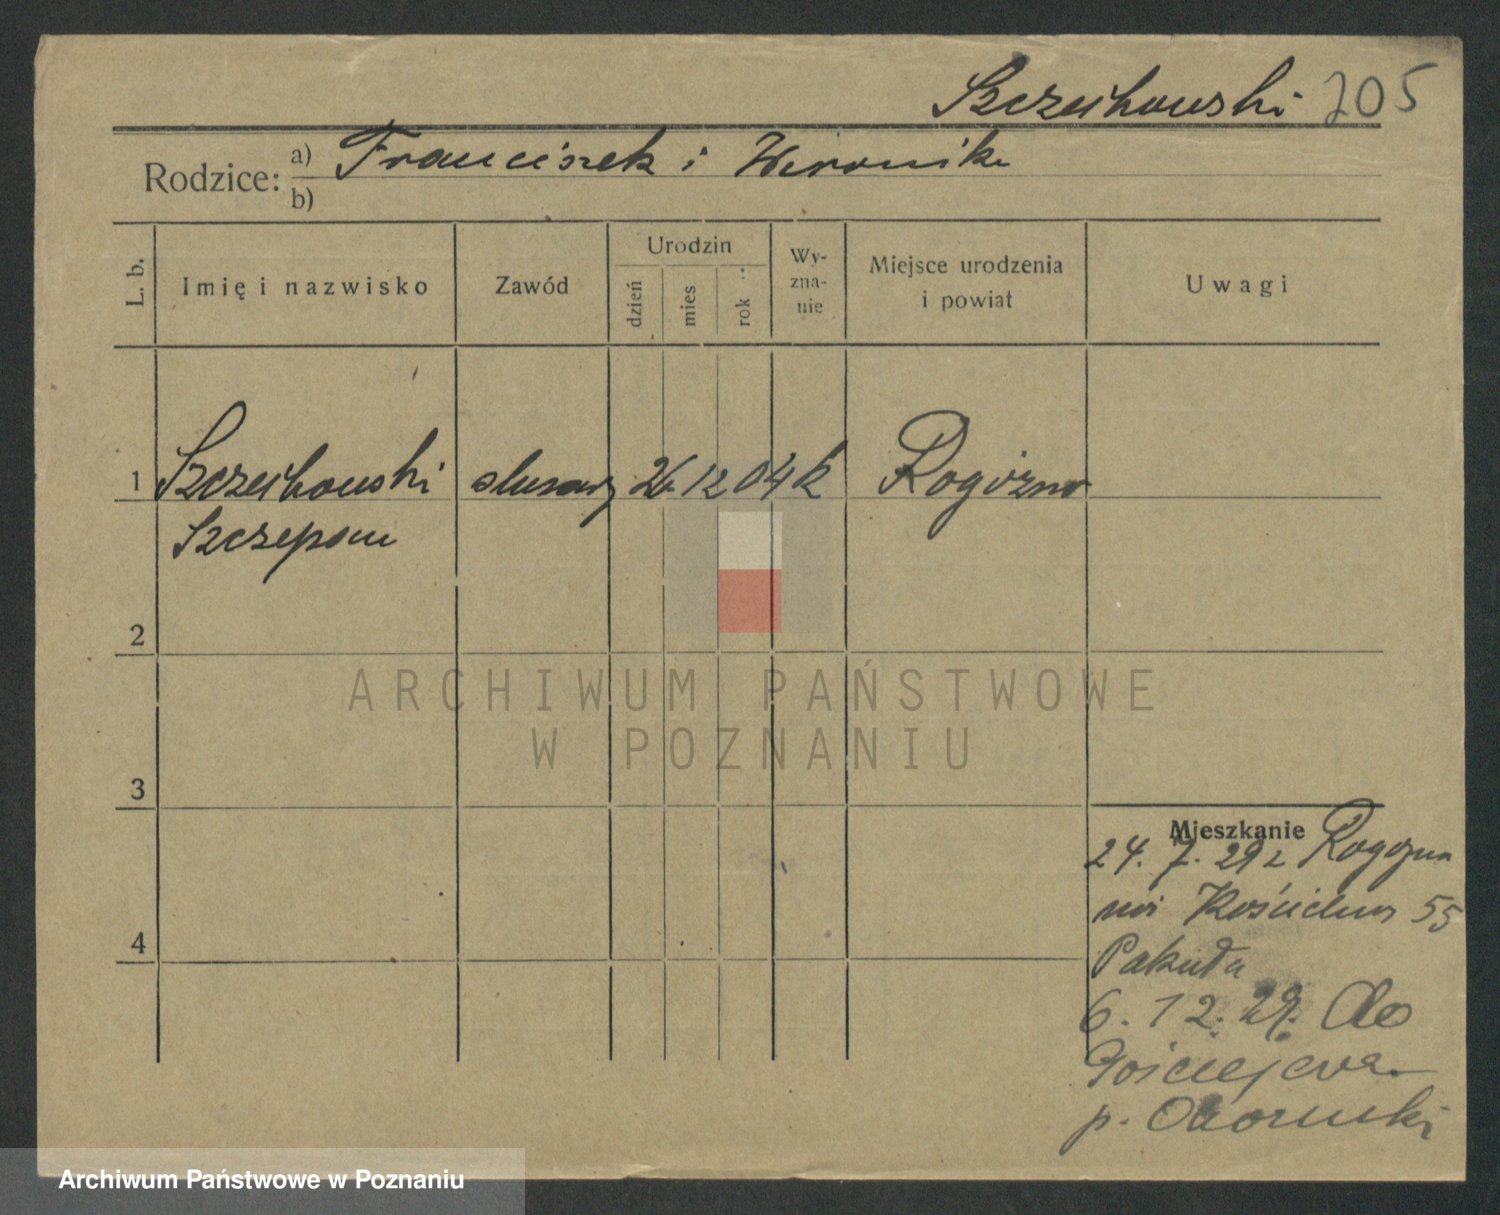 Szczeikowski 205
Rodzice: a) Franciszek i Weronika
b)
L. b.
Imię i nazwisko
Zawód
Urodzin
dzień
mies
rok
Wy-
zna-
nie
Miejsce urodzenia
i powiat
Uwagi
1 Szczeikowski ślusarz 26 12 04 k Rogoźno
Szczepan
2
ARCHIWUM PAŃSTWOWE
W POZNANIU
3
4
Mieszkanie
24. 7. 29 z Rogoźna
55
Pakuła
6. 12. 29. do
p. Obornicki
Archiwum Państwowe w Poznaniu